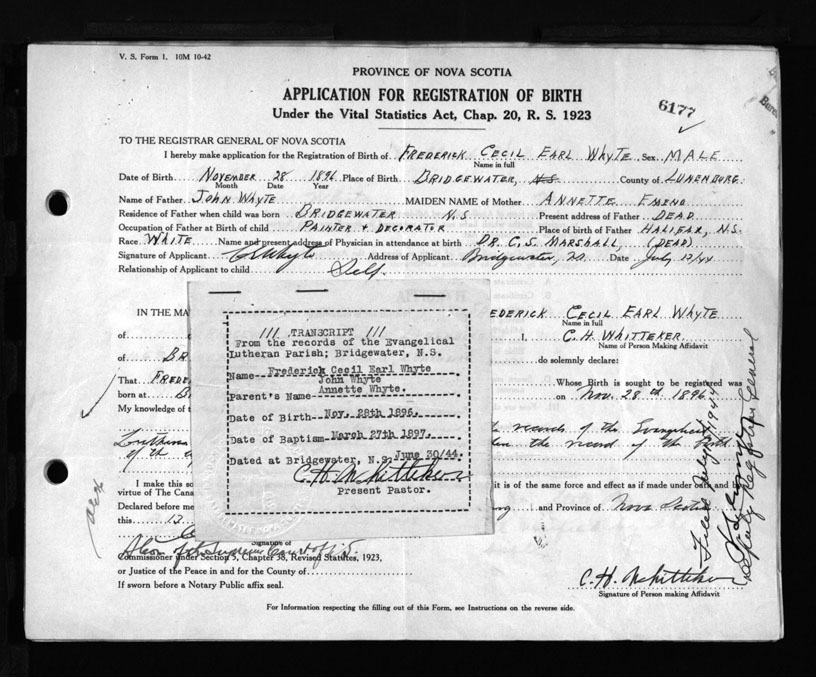 V. S. Form 1. 10M 10-42
PROVINCE OF NOVA SCOTIA
APPLICATION FOR REGISTRATION OF BIRTH
6177
Under the Vital Statistics Act, Chap. 20, R. S. 1923
TO THE REGISTRAR GENERAL OF NOVA SCOTIA
I hereby make application for the Registration of Birth of FREDERICK CECIL EARL WHYTE Sex MALE
Name in full
Date of Birth NOVEMBER 28 1896 Place of Birth BRIDGEWATER, N.S. County of LUNENBURG.
Month Date Year
Name of Father JOHN WHYTE MAIDEN NAME of Mother ANNETTE
Residence of Father when child was born BRIDGEWATER N.S Present address of Father DEAD
Occupation of Father at Birth of child PAINTER & DECORATOR Place of birth of Father HALIFAX, N.S.
Race WHITE Name and present address of Physician in attendance at birth DR. C. S. MARSHALL, (DEAD)
Signature of Applicant Whyte Address of Applicant Bridgewater, Date July 12/44
Relationship of Applicant to child Self
IN THE MA
EDERICK CECIL EARL WHYTE
Name in full
of
I, C. H. WHITTEKER
Name of Person Making Affidavit
of BR
do solemnly declare:
That FREDE
Whose Birth is sought to be registered was
born at B
on Nov. 28th 1896
My knowledge of t
records of the Evangelical
Lutheran
the record of the birth
of the
/// TRANSCRIPT ///
From the records of the Evangelical
Lutheran Parish; Bridgewater, N.S.
Name--Frederick Cecil Earl Whyte
John Whyte
Annette Whyte.
Parent's Name
Date of Birth--Nov. 28th 1896.
Date of Baptism--March 27th 1897.
Dated at Bridgewater, N.S. June 30/44.
C. H. Whitteker
Present Pastor.
I make this so
it is of the same force and effect as if made under oath and by
virtue of The Cana
Declared before me
and Province of Nova Scotia
this 12
Signature of
of the Supreme Court of N.S.
Commissioner under Section 5, Chapter 38, Revised Statutes, 1923,
or Justice of the Peace in and for the County of
If sworn before a Notary Public affix seal.
C. H. Whitteker
Signature of Person making Affidavit
Filed July 1944
Deputy Registrar General
For Information respecting the filling out of this Form, see Instructions on the reverse side.